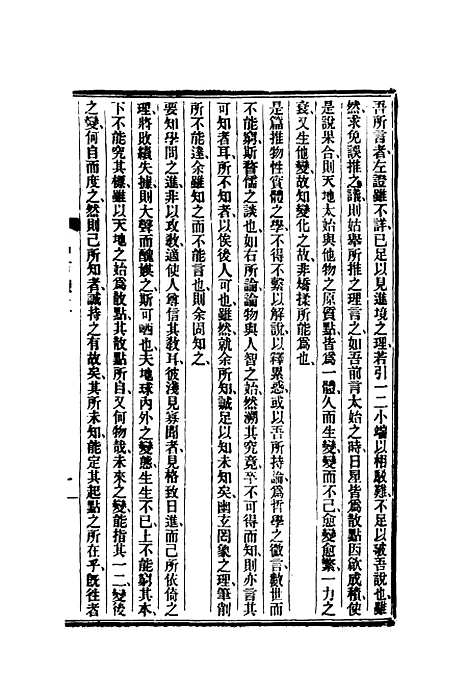 吾所言者左證雖不詳已足以見進境之理若引一二小端以相駁難不足以破吾說也雖
然求免誤推之議則姑舉所推之理言之如吾前言太始之時日星皆為散點因歙成積使
是說果合則天地太始與他物之原質點皆為一體久而生變變而不已愈變愈繁一力之
衰又生他變故知變化之故非矯揉所能為也
是篇推物性質體之學不得不繫以解說以釋累惑或以吾所持論為哲學之微言數世而
不能窮斯瞀儒之談也如右所論論物與人智之始然溯其究竟卒不可得而知則亦言其
可知者耳所不知者以俟後人可也雖然就余所知誠足以知未知矣幽玄罔象之理筆削
所不能達余雖知之而不能言也則余固知之
要知學問之進非以攻教適使人尊信其教耳彼淺見寡聞者見格致日進而己所依倚之
理將敗績失據則大聲而醜娸之斯可哂也夫天地球內外之變態生生不已上不能窮其本
下不能究其標雖以天地之始為散點其散點所自又何物哉未來之變能指其一二變後
之變何自而度之然則己所知者誠持之有故矣其所未知能定其起點之所在乎既往者